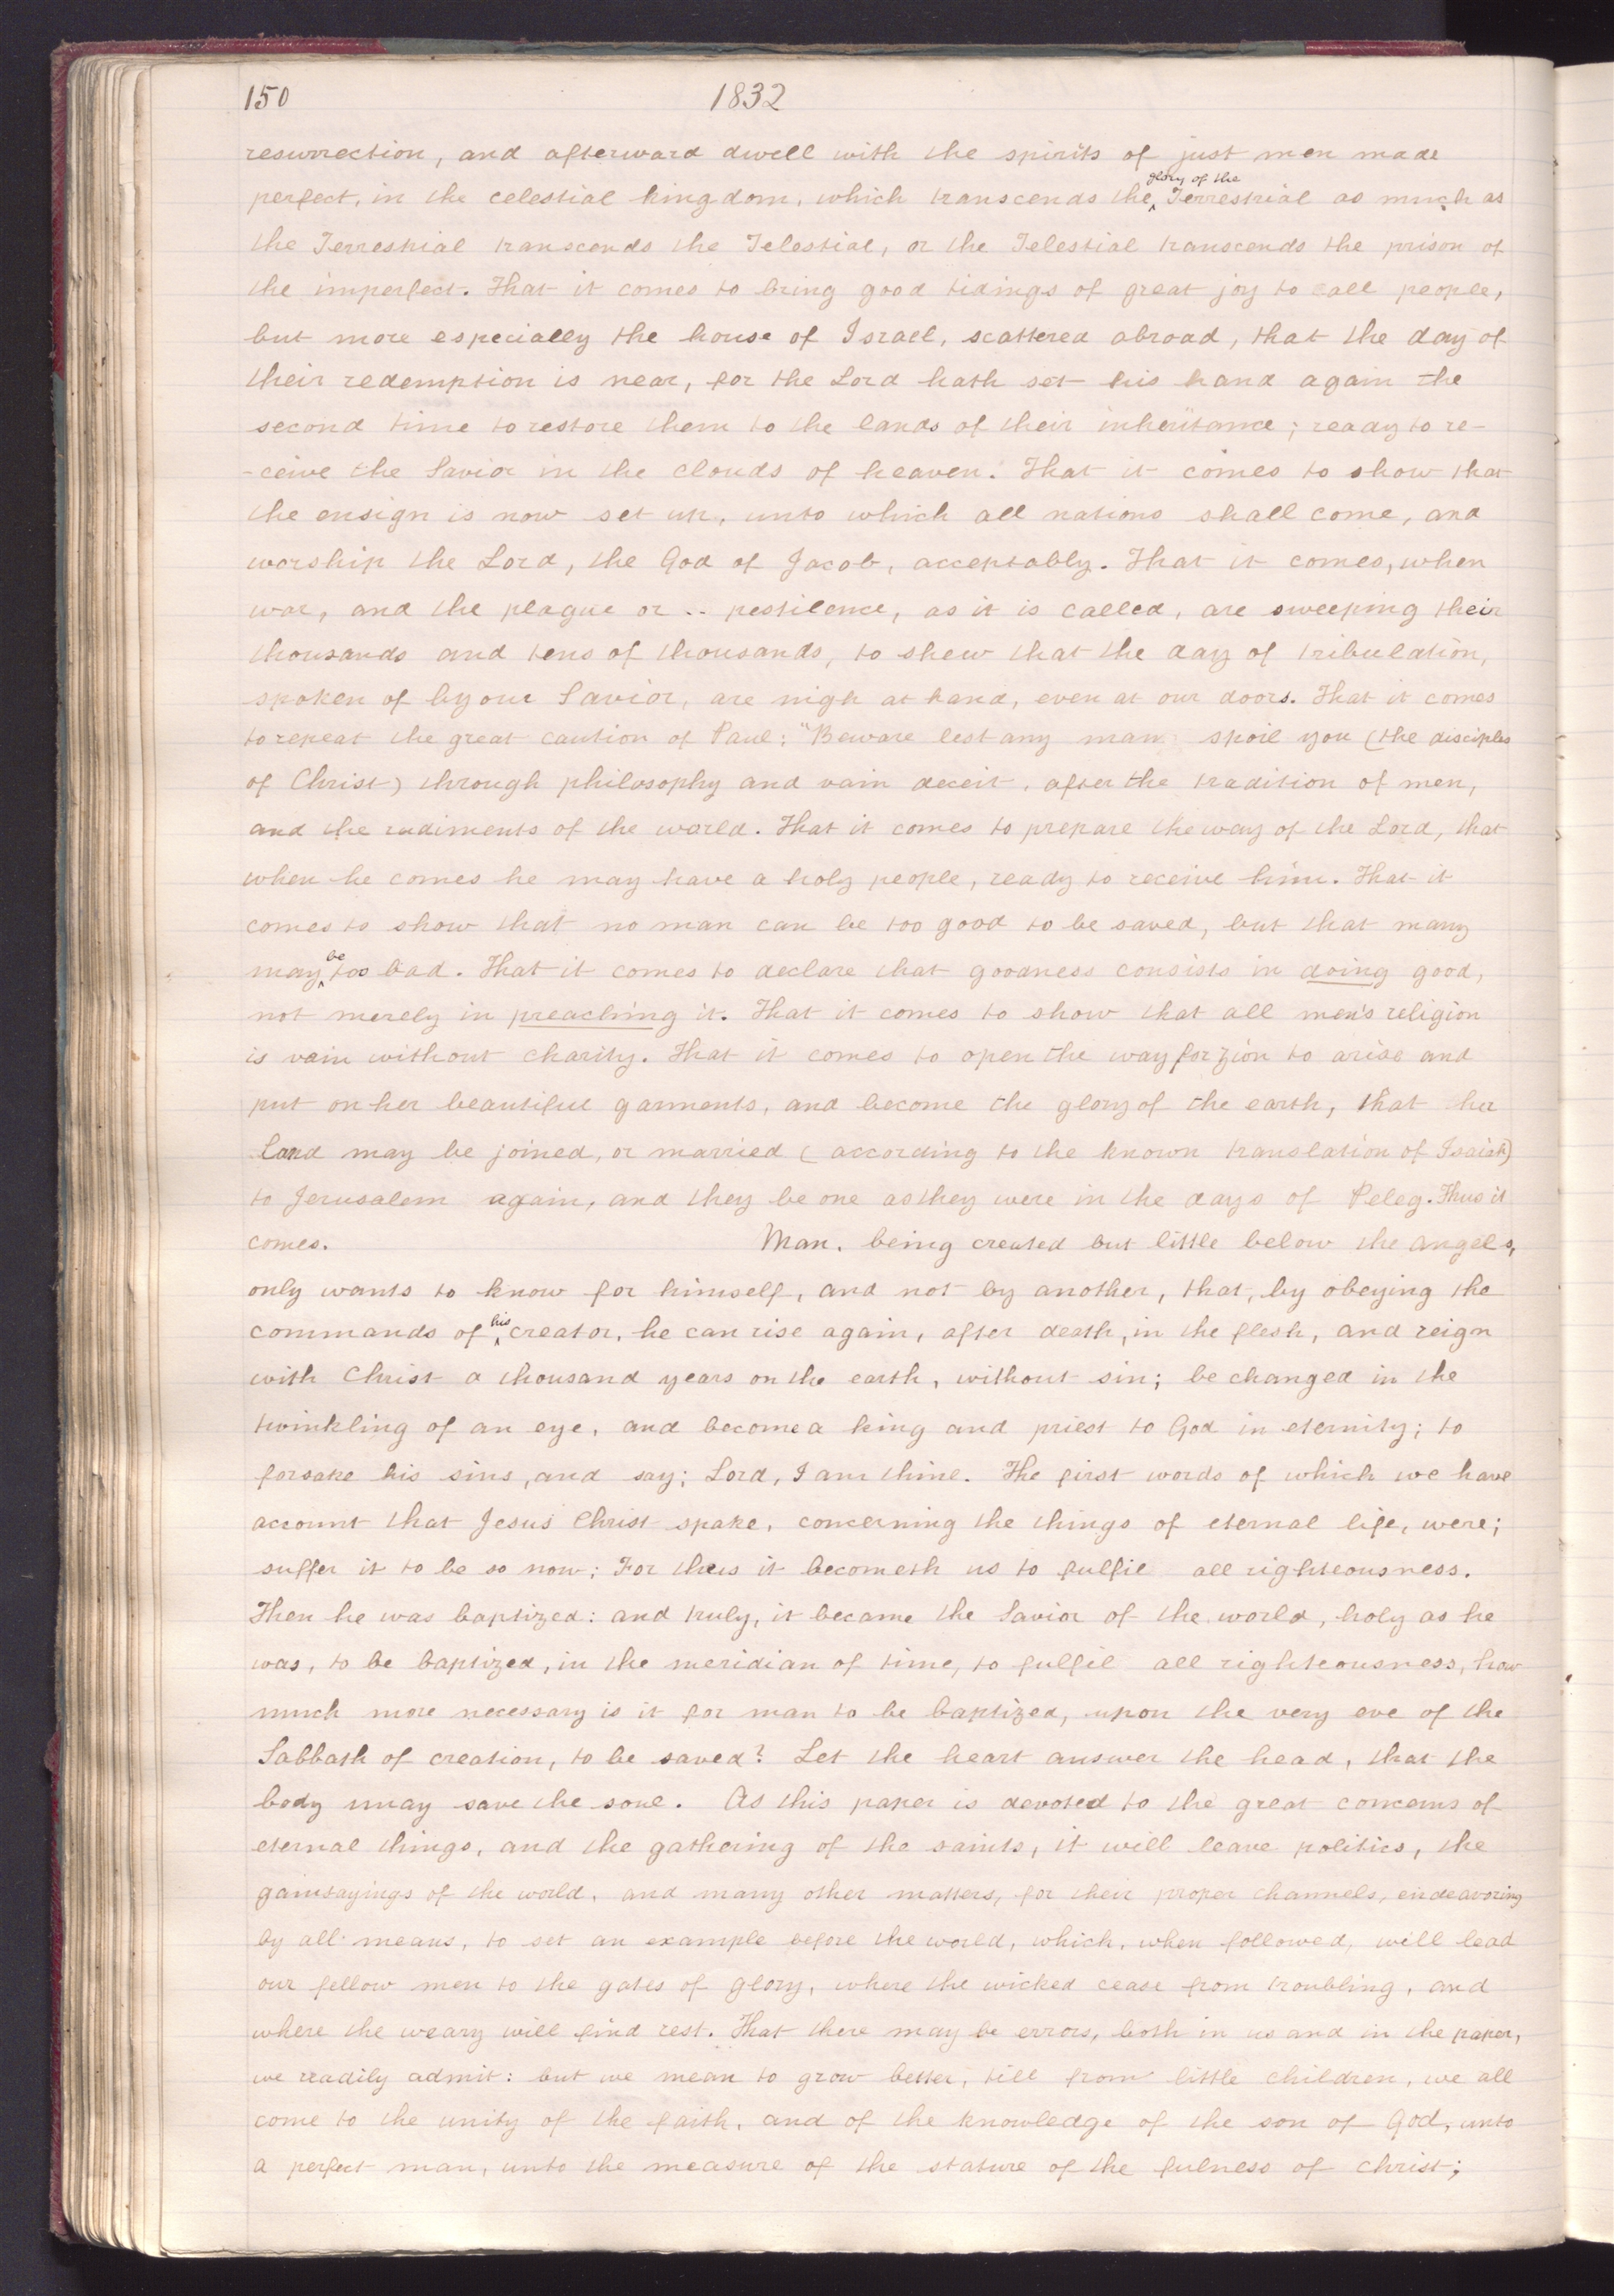 150 1832
resurrection, and afterward dwell with the spirits of just men made
glory of the
perfect, in the celestial kingdom, which transcends the ‸ Terrestrial as much as
the Terrestrial transcends the Telestial, or the Telestial transcends the prison of
the imperfect. That it comes to bring good tidings of great joy to all people,
but more especially the house of Israel, scattered abroad, that the day of
their redemption is near, for the Lord hath set his hand again the
second time to restore them to the lands of their inheritance; ready to re-
-ceive the Savior in the clouds of heaven. That it comes to show that
the ensign is now set up, unto which all nations shall come, and
worship the Lord, the God of Jacob, acceptably. That it comes, when
war, and the plague or .. pestilence, as it is called, are sweeping their
thousands and tens of thousands, to shew that the day of tribulation,
spoken of by our Savior, are nigh at hand, even at our doors. That it comes
to repeat the great caution of Paul: "Beware lest any man spoil you (the disciples
of Christ) through philosophy and vain deceit, after the tradition of men,
and the rudiments of the world. That it comes to prepare the way of the Lord, that
when he comes he may have a holy people, ready to receive him. That it
comes to show that no man can be too good to be saved, but that many
be
may ‸ too bad. That it comes to declare that goodness consists in doing good,
not merely in preaching it. That it comes to show that all men's religion
is vain without charity. That it comes to open the way for Zion to arise and
put on her beautiful garments, and become the glory of the earth, that her
land may be joined, or married (according to the known translation of Isaiah)
to Jerusalem again, and they be one as they were in the days of Peleg. Thus it
comes. Man, being created but little below the angels,
only wants to know for himself, and not by another, that, by obeying the
his
commands of ‸ creator, he can rise again, after death, in the flesh, and reign
with Christ a thousand years on the earth, without sin; be changed in the
twinkling of an eye, and become a king and priest to God in eternity; to
forsake his sins, and say; Lord, I am thine. The first words of which we have
account that Jesus Christ spake, concerning the things of eternal life, were;
suffer it to be so now: For thus it becometh us to fulfil all righteousness.
Then he was baptized: and truly, it became the Savior of the world, holy as he
was, to be baptized, in the meridian of time, to fulfil all righteousness, how
much more necessary is it for man to be baptized, upon the very eve of the
Sabbath of creation, to be saved? Let the heart answer the head, that the
body may save the soul. As this paper is devoted to the great concerns of
eternal things, and the gathering of the saints, it will leave politics, the
gainsayings of the world, and many other matters, for their proper channels, endeavoring
by all means, to set an example before the world, which, when followed, will lead
our fellow men to the gates of glory, where the wicked cease from troubling, and
where the weary will find rest. That there may be errors, both in us and in the paper,
we readily admit: but we mean to grow better, till from little children, we all
come to the unity of the faith, and of the knowledge of the son of God, unto
a perfect man, unto the measure of the stature of the fulness of Christ;